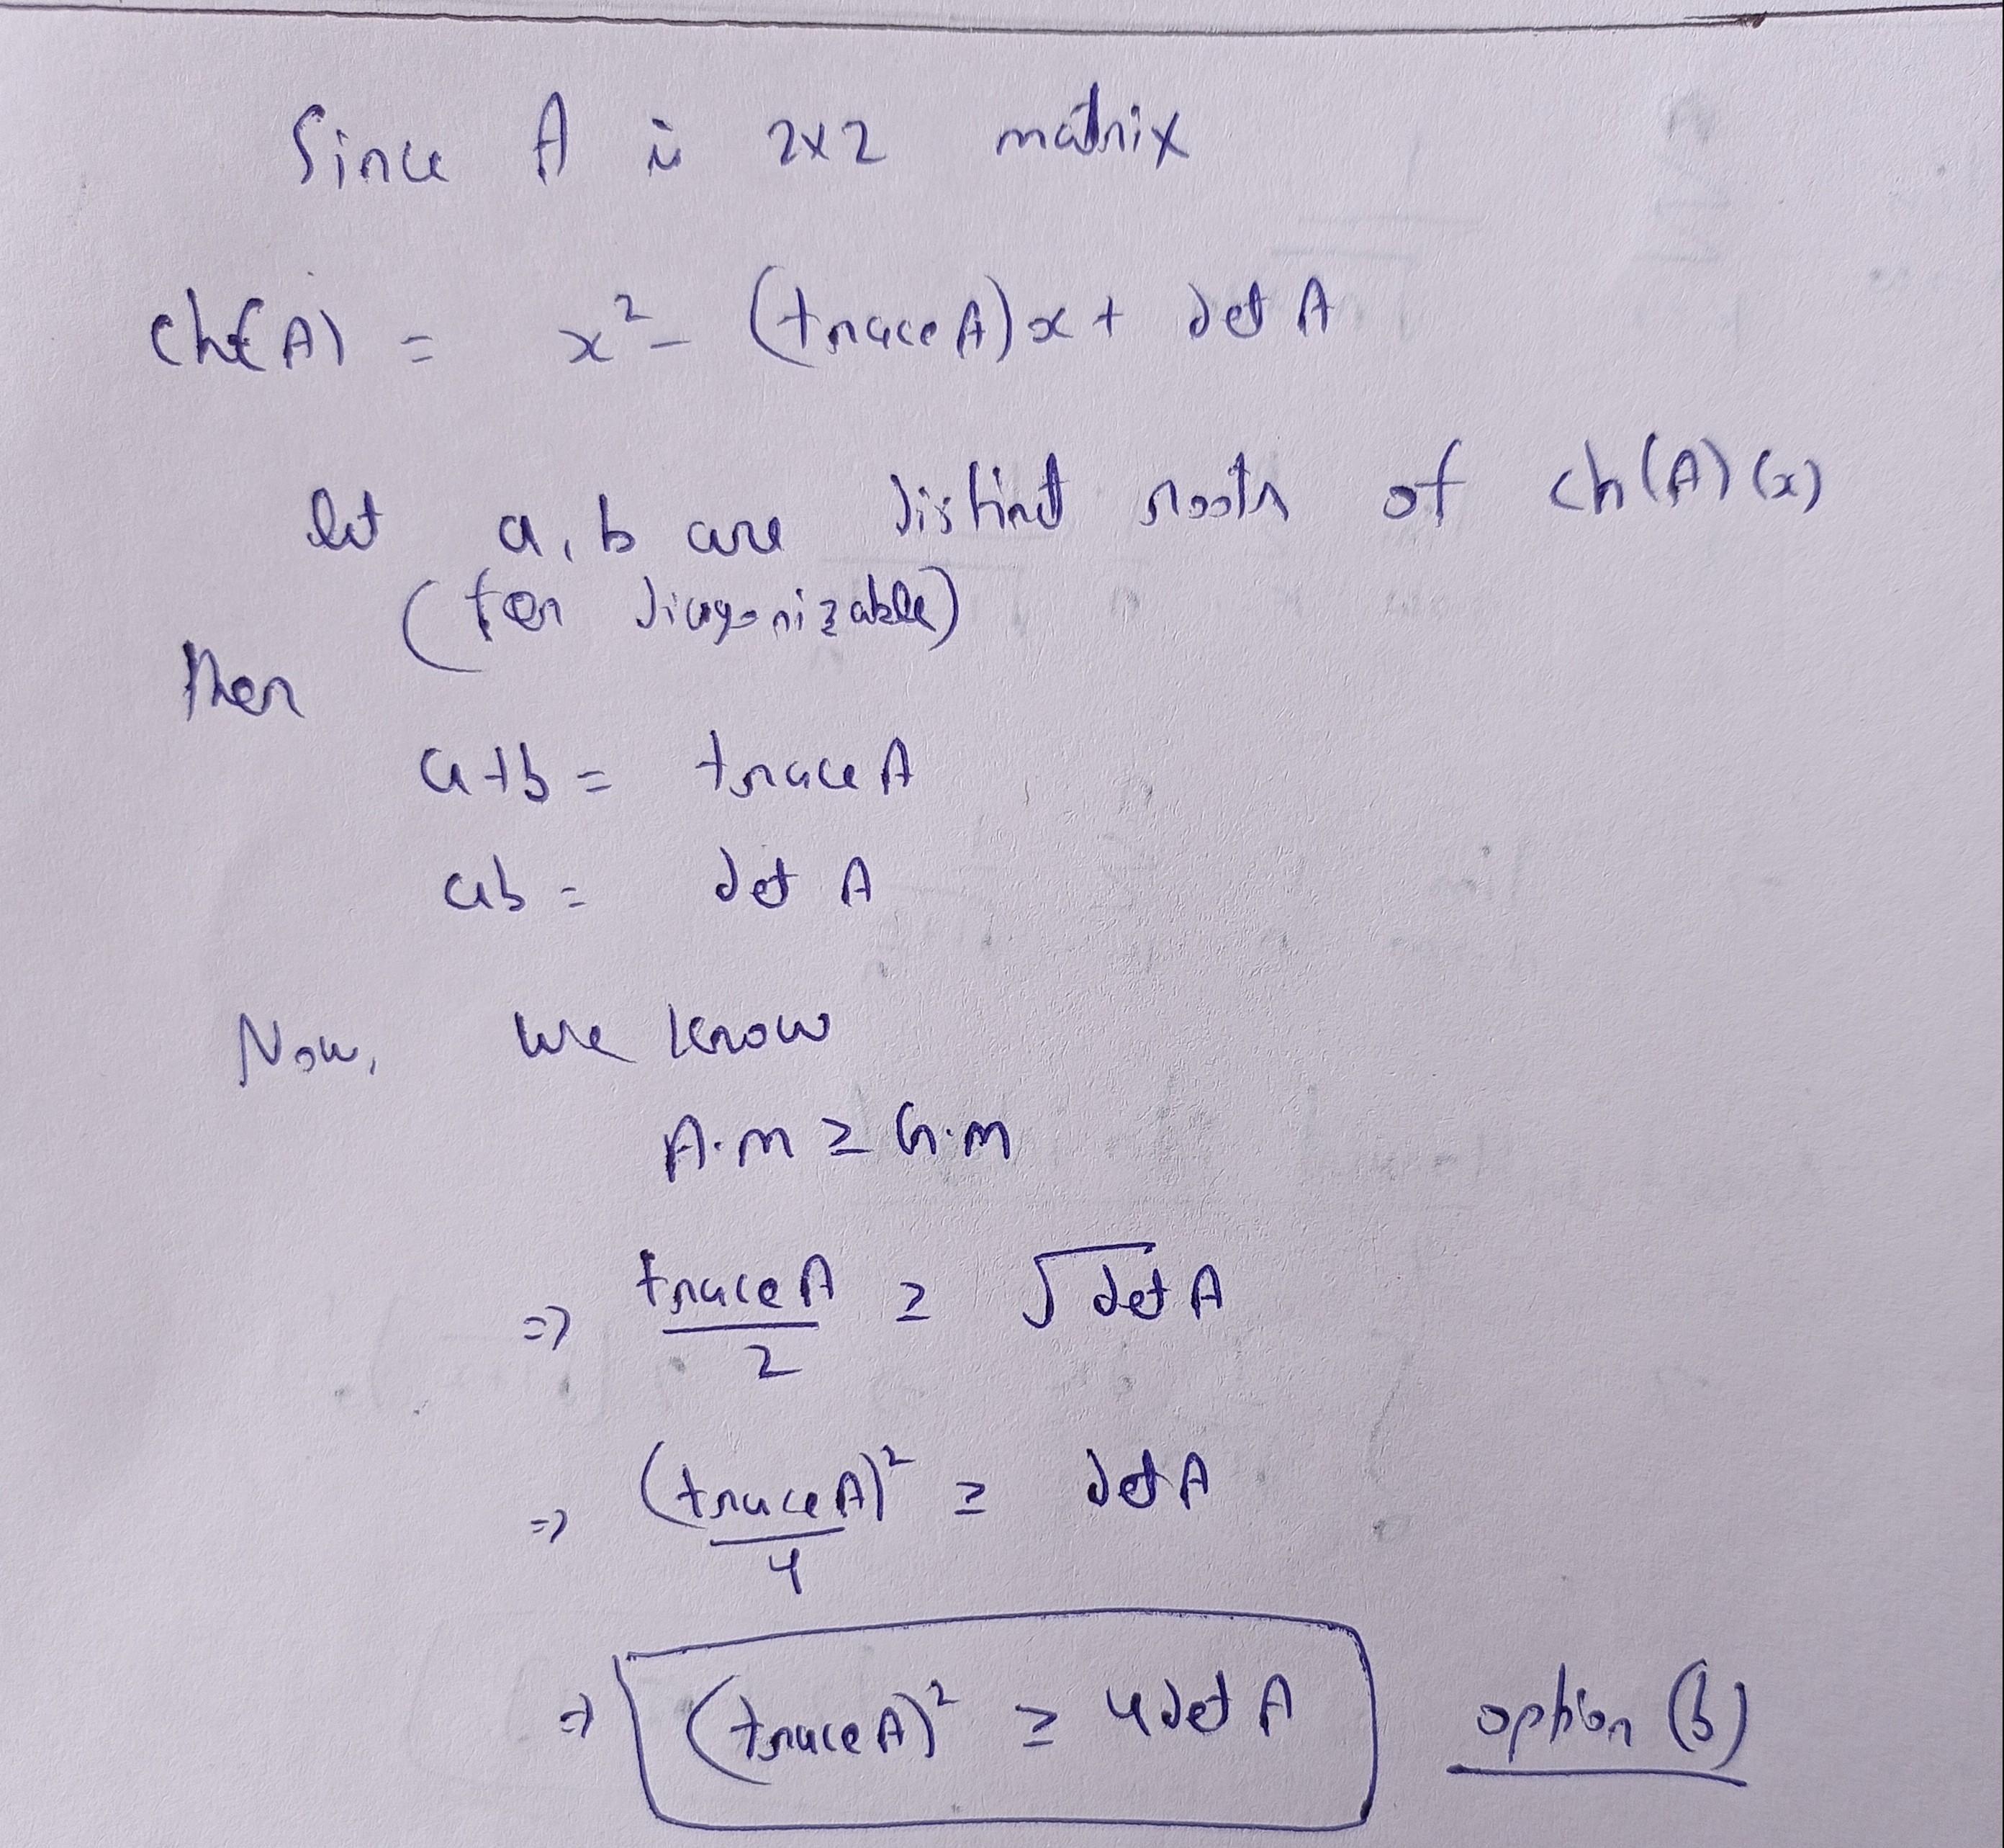 Since A is 2x2 matrix
ch(A) = x² - (trace A)x + det A
let a, b are distinct roots of ch(A)(x)
(for diagonizable)
Then
a+b = trace A
ab = det A
Now, we know
A.m ≥ G.m
=> trace A / 2 ≥ √det A
=> (trace A)² / 4 ≥ det A
=> (trace A)² ≥ 4 det A option (b)